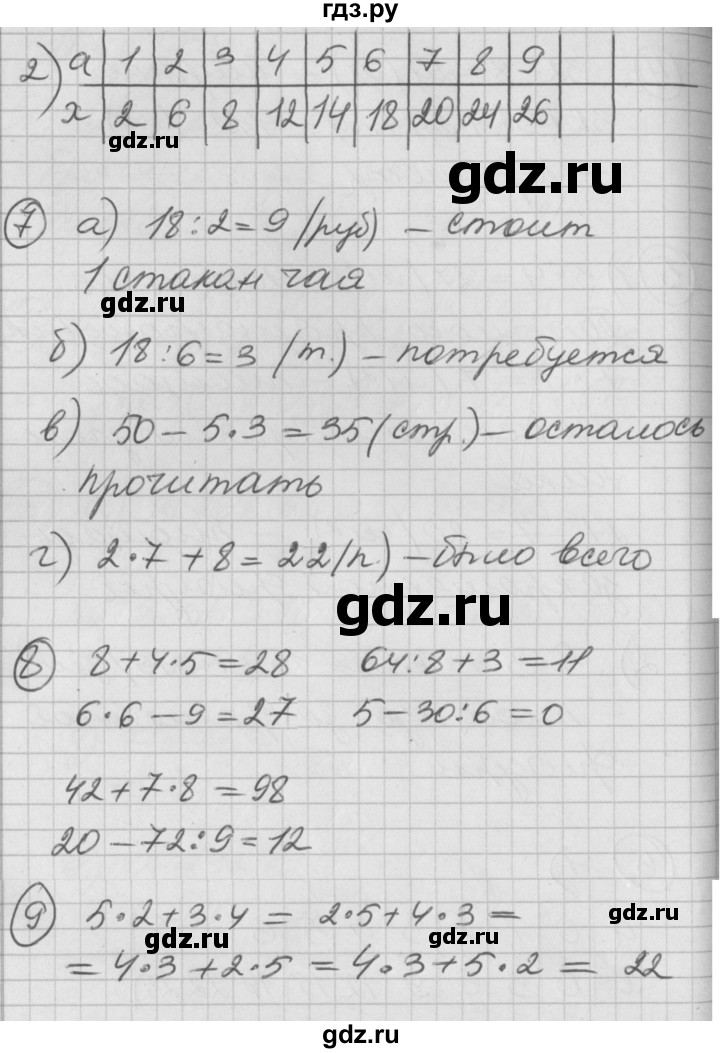 гдз.ру
2) а 1 2 3 4 5 6 7 8 9
х 2 6 8 12 14 18 20 24 26
gdz.ru
gdz.ru
7 а) 18:2=9 (руб) – стоит
1 стакан чая
gdz.ru
б) 18:6=3 (т.) – потребуется
в) 50–5·3=35 (стр.) – осталось
прочитать
г) 2·7+8=22 (п.) – было всего
gdz.ru
8 8+4·5=28 64:8+3=11
6·6–9=27 5–30:6=0
42+7·8=98
20–72:9=12
9 5·2+3·4= 2·5+4·3=
gdz.ru
gdz.ru
gdz.ru
=4·3+2·5=4·3+5·2= 22
gdz.ru